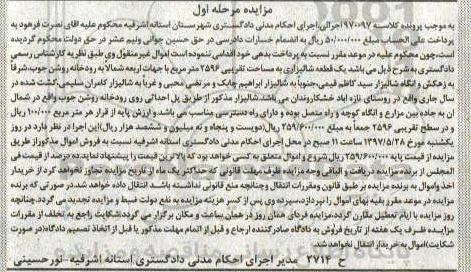 مزایده مرحله اول
به موجب پرونده کلاسه ۹۷۰۰۹۷ اجرائی، اجرای احکام مدنی دادگستری شهرستان آستانه اشرفیه محکوم علیه آقای نصرت فرهود به
پرداخت علی الحساب مبلغ ۵۰/۰۰۰/۰۰۰ ریال به انضمام خسارات دادرسی در حق حسین جوانی ونیم عشر در حق دولت محکوم گردیده
است، چون محکوم علیه در موعد مقرر نسبت به پرداخت بدهی خود اقدامی ننموده است اموال غیر منقول وی طبق نظریه کارشناس رسمی
دادگستری به شرح ذیل می باشد یک قطعه شالیزاری به مساحت تقریبی ۲۵۹۶ متر مربع با حدود اربعه شمالاً به رودخانه روشن جوب، شرقاً
به زهکش و آنگاه شالیزار سید کاظم قیمی، جنوباً به شالیزار ابراهیم چابک و مرتضی محبی و غرباً به شالیزار کامران سلیمی، کشت شده در
سال جاری واقع در روستای نازه آباد خشکاروندان می باشد. شالیزار مذکور از طریق پل احداثی روی رودخانه روشن جوب واقع در شمال
آن به جاده بین مزارع و آنگاه کوچه و راه متصل بوده و دارای راه دسترسی مناسب می باشد و ارزش پایه از قرار هر متر مربع ۱۰۰/۰۰۰ ریال
و در سطح تقریبی ۲۵۹۶ جمعاً به مبلغ ۲۵۹/۶۰۰/۰۰۰ ریال(دویست و پنجاه و نه میلیون و ششصد هزار ریال) این اجرا در نظر دارد در روز
یکشنبه مورخ ۱۳۹۷/۵/۲۸ ساعت ۱۱ صبح در محل اجرای احکام مدنی دادگستری آستانه اشرفیه نسبت به فروش اموال مذکور از طریق
مزایده از قیمت پایه ۲۵۹/۶۰۰/۰۰۰ ریال شروع و اموال متعلق به کسی خواهد بود که بالاترین قیمت را پیشنهاد نماید. ده درصد از قیمت فی
المجلس از برنده مزایده دریافت و الباقی وجه مزایده ظرف مهلت قانونی که حداکثر یک ماه از تاریخ مزایده تجاوز نخواهد کرد از خریدار
اخذ و اموال به برنده مزایده بر طبق قانون و مقررات انتقال و چنانچه منع قانونی نداشته باشد، انتقال داده خواهد شد. در صورتی که برنده
مزایده در موعد مقرر بقیه بهای اموال را نپردازد، سپرده وی پس از کسر هزینه مزایده به نفع دولت ضبط و مزایده تجدید می گردد. چنانچه
روز مزایده با ایام تعطیل مقارن گردد، مزایده فردای همان روز در همان ساعت و مکان برگزار می گردد. شکایت راجع به تخلف از مقررات
مزایده ظرف یک هفته از تاریخ فروش به دادگاه صادرکننده ارجاع و قبل از اتمام مهلت مذکور یا قبل از اتخاذ تصمیم دادگاه(در صورت
شکایت)اموال به خریدار انتقال نخواهد شد.
ح ۲۷۱۴ مدیر اجرای احکام مدنی دادگستری آستانه اشرفیه- نورحسینی